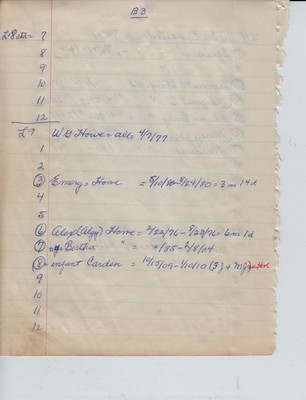 B3
L8 cth. 7
8
9
10
11
12
L9 W G Howe - all 4/7/77
1
2
3 Emery Howe = 5/10/80-8/24/80 = 3 m 14 d
4
5
6 Alex (Algy) Howe = 2/22/76 - 8/23/76 = 6m 1d
7 Bertha " = /85 - 2/5/04
8 infant Carden = 10/15/09 - 1/10/10 (3) +
9
10
11
12